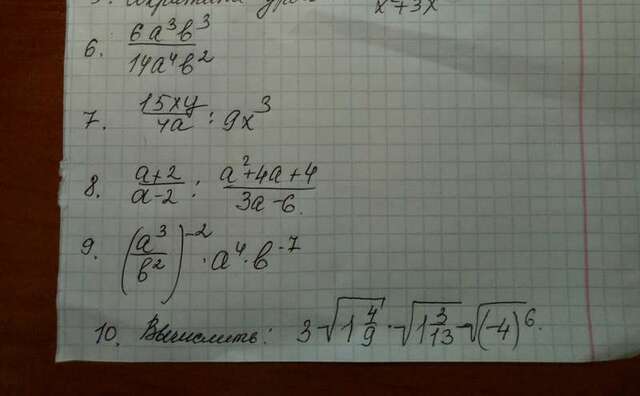 5. Сократить дробь x²+3x
6. 6a³b³/14a⁴b²
7. 15xy/4a : 9x³
8. a+2/a-2 : a²+4a+4/3a-6
9. (a³/b²)⁻² · a⁴ · b⁻⁷
10. Вычислить: 3√1 4/9 · √1 3/13 - √(-4)⁶.